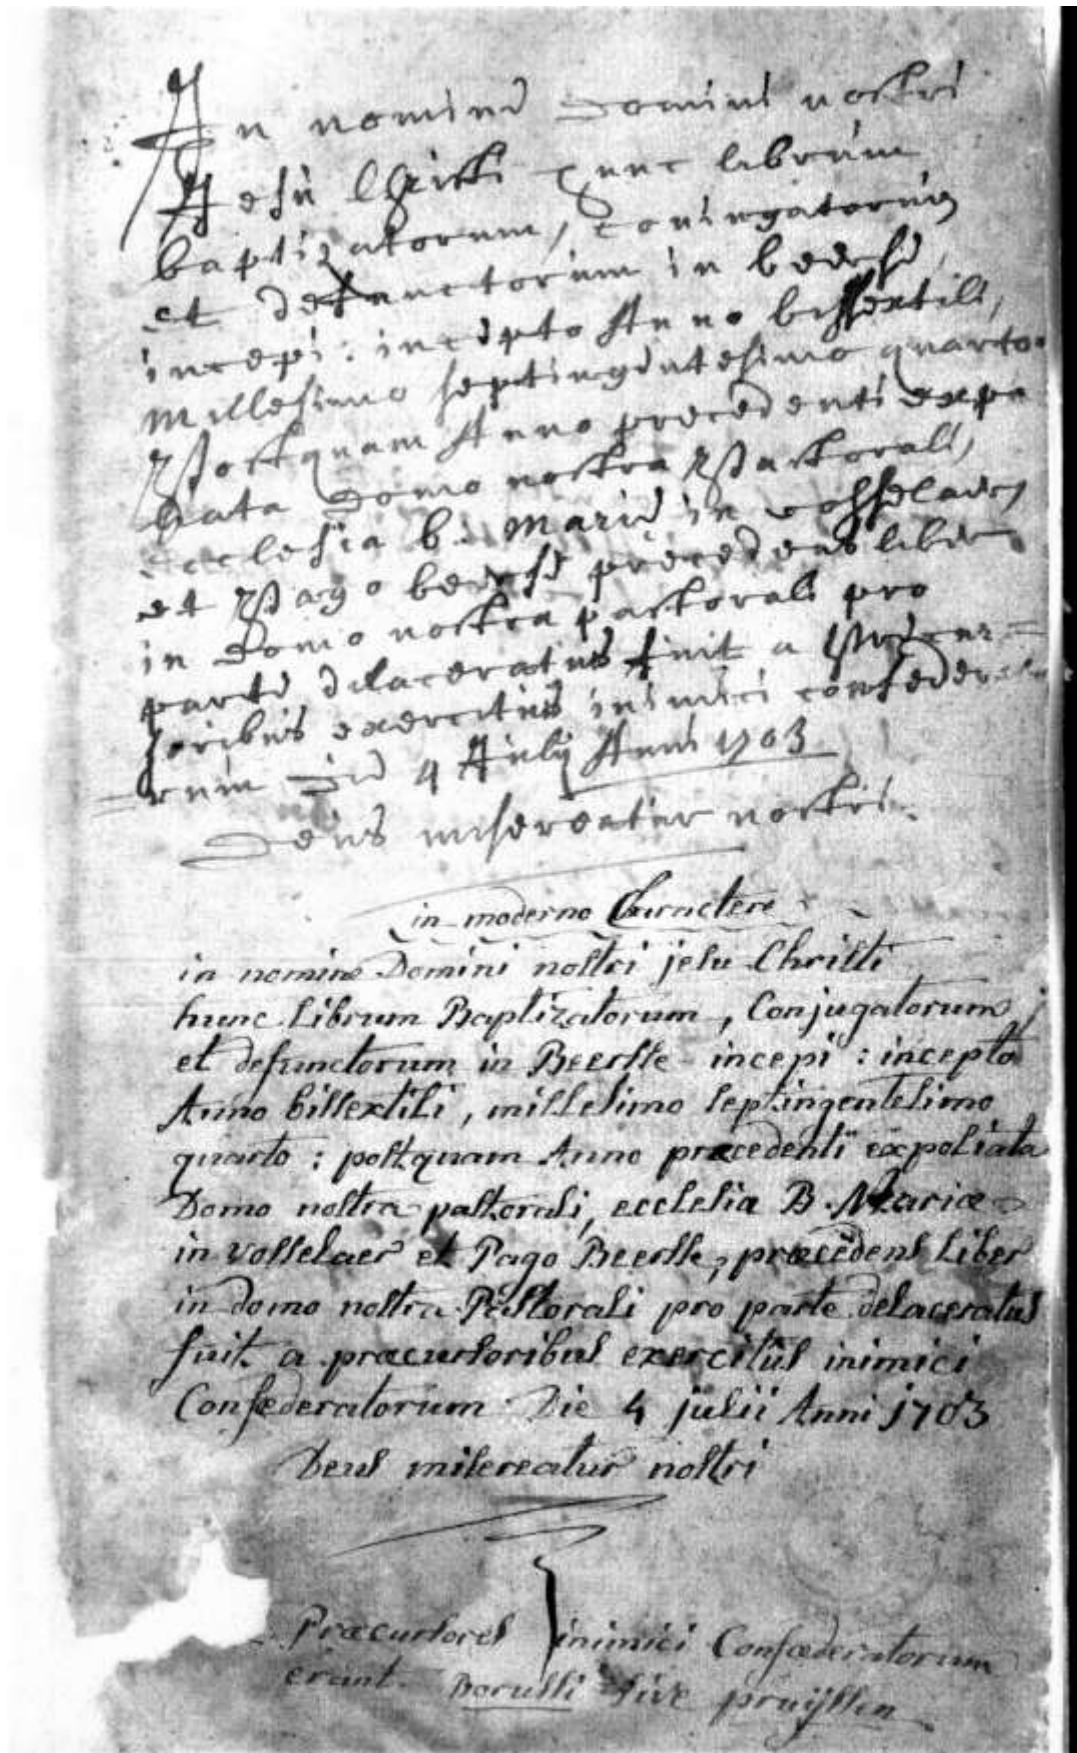 In nomine Domini nostri
Jesu Christi hunc librum
baptizatorum, coniugatorum
et defunctorum in beerse
incepi: incepto Anno bissextili,
millesimo septingentesimo quarto.
Postquam Anno precedenti expo
liata Domo nostra Pastorali,
ecclesia b. marie in vosselaer
et Pago beerse precedens liber
in Domo nostra pastorali pro
parte delaceratus fuit a Precur=
soribus exercitus inimici confedera
rum Die 4 July Anni 1703
Deus misereatur nostri.
in moderno Charactere
in nomine Domini nostri jesu Christi
hunc Librum Baptizatorum, Conjugatorum
et defunctorum in Beersse incepi: incepto
Anno bissextili, millesimo septingentesimo
quarto: postquam Anno præcedenti expoliata
Domo nostra pastorali, ecclesia B. Mariæ
in vosselaer et Pago Beersse, præcedens Liber
in domo nostra Pastorali pro parte delaceratus
fuit a præcursoribus exercitûs inimici
Confæderatorum Die 4 julii Anni 1703
Deus misereatur nostri
Præcursores inimici Confæderatorum
erant Borussi sive pruijssen